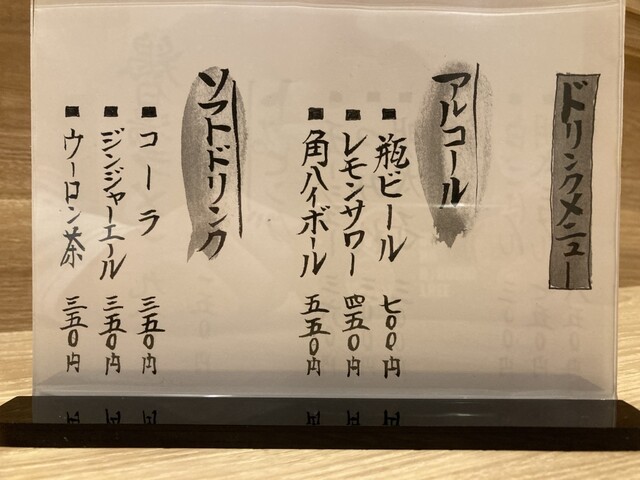 ドリンクメニュー
アルコール
■瓶ビール 七〇〇円
■レモンサワー 四五〇円
■角ハイボール 五五〇円
ソフトドリンク
■コーラ 三五〇円
■ジンジャーエール 三五〇円
■ウーロン茶 三五〇円